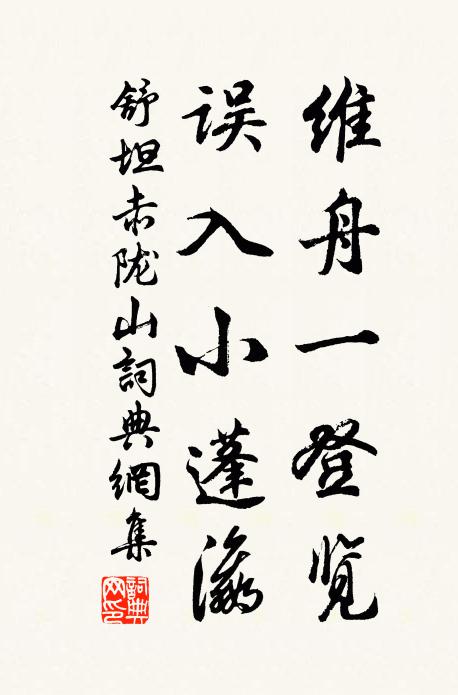 维舟一登览
误入小蓬瀛
舒坦赤陇山詞典網集
詞典网印